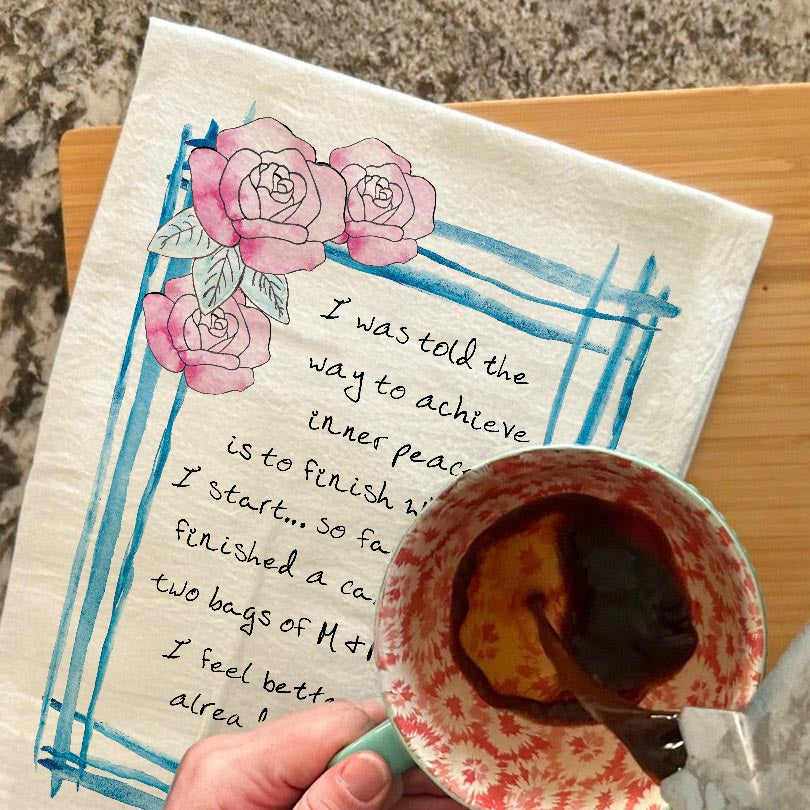 I was told the
way to achieve
inner peac
is to finish
I start... so fa
finished a ca
two bags of M &
I feel bette
alrea